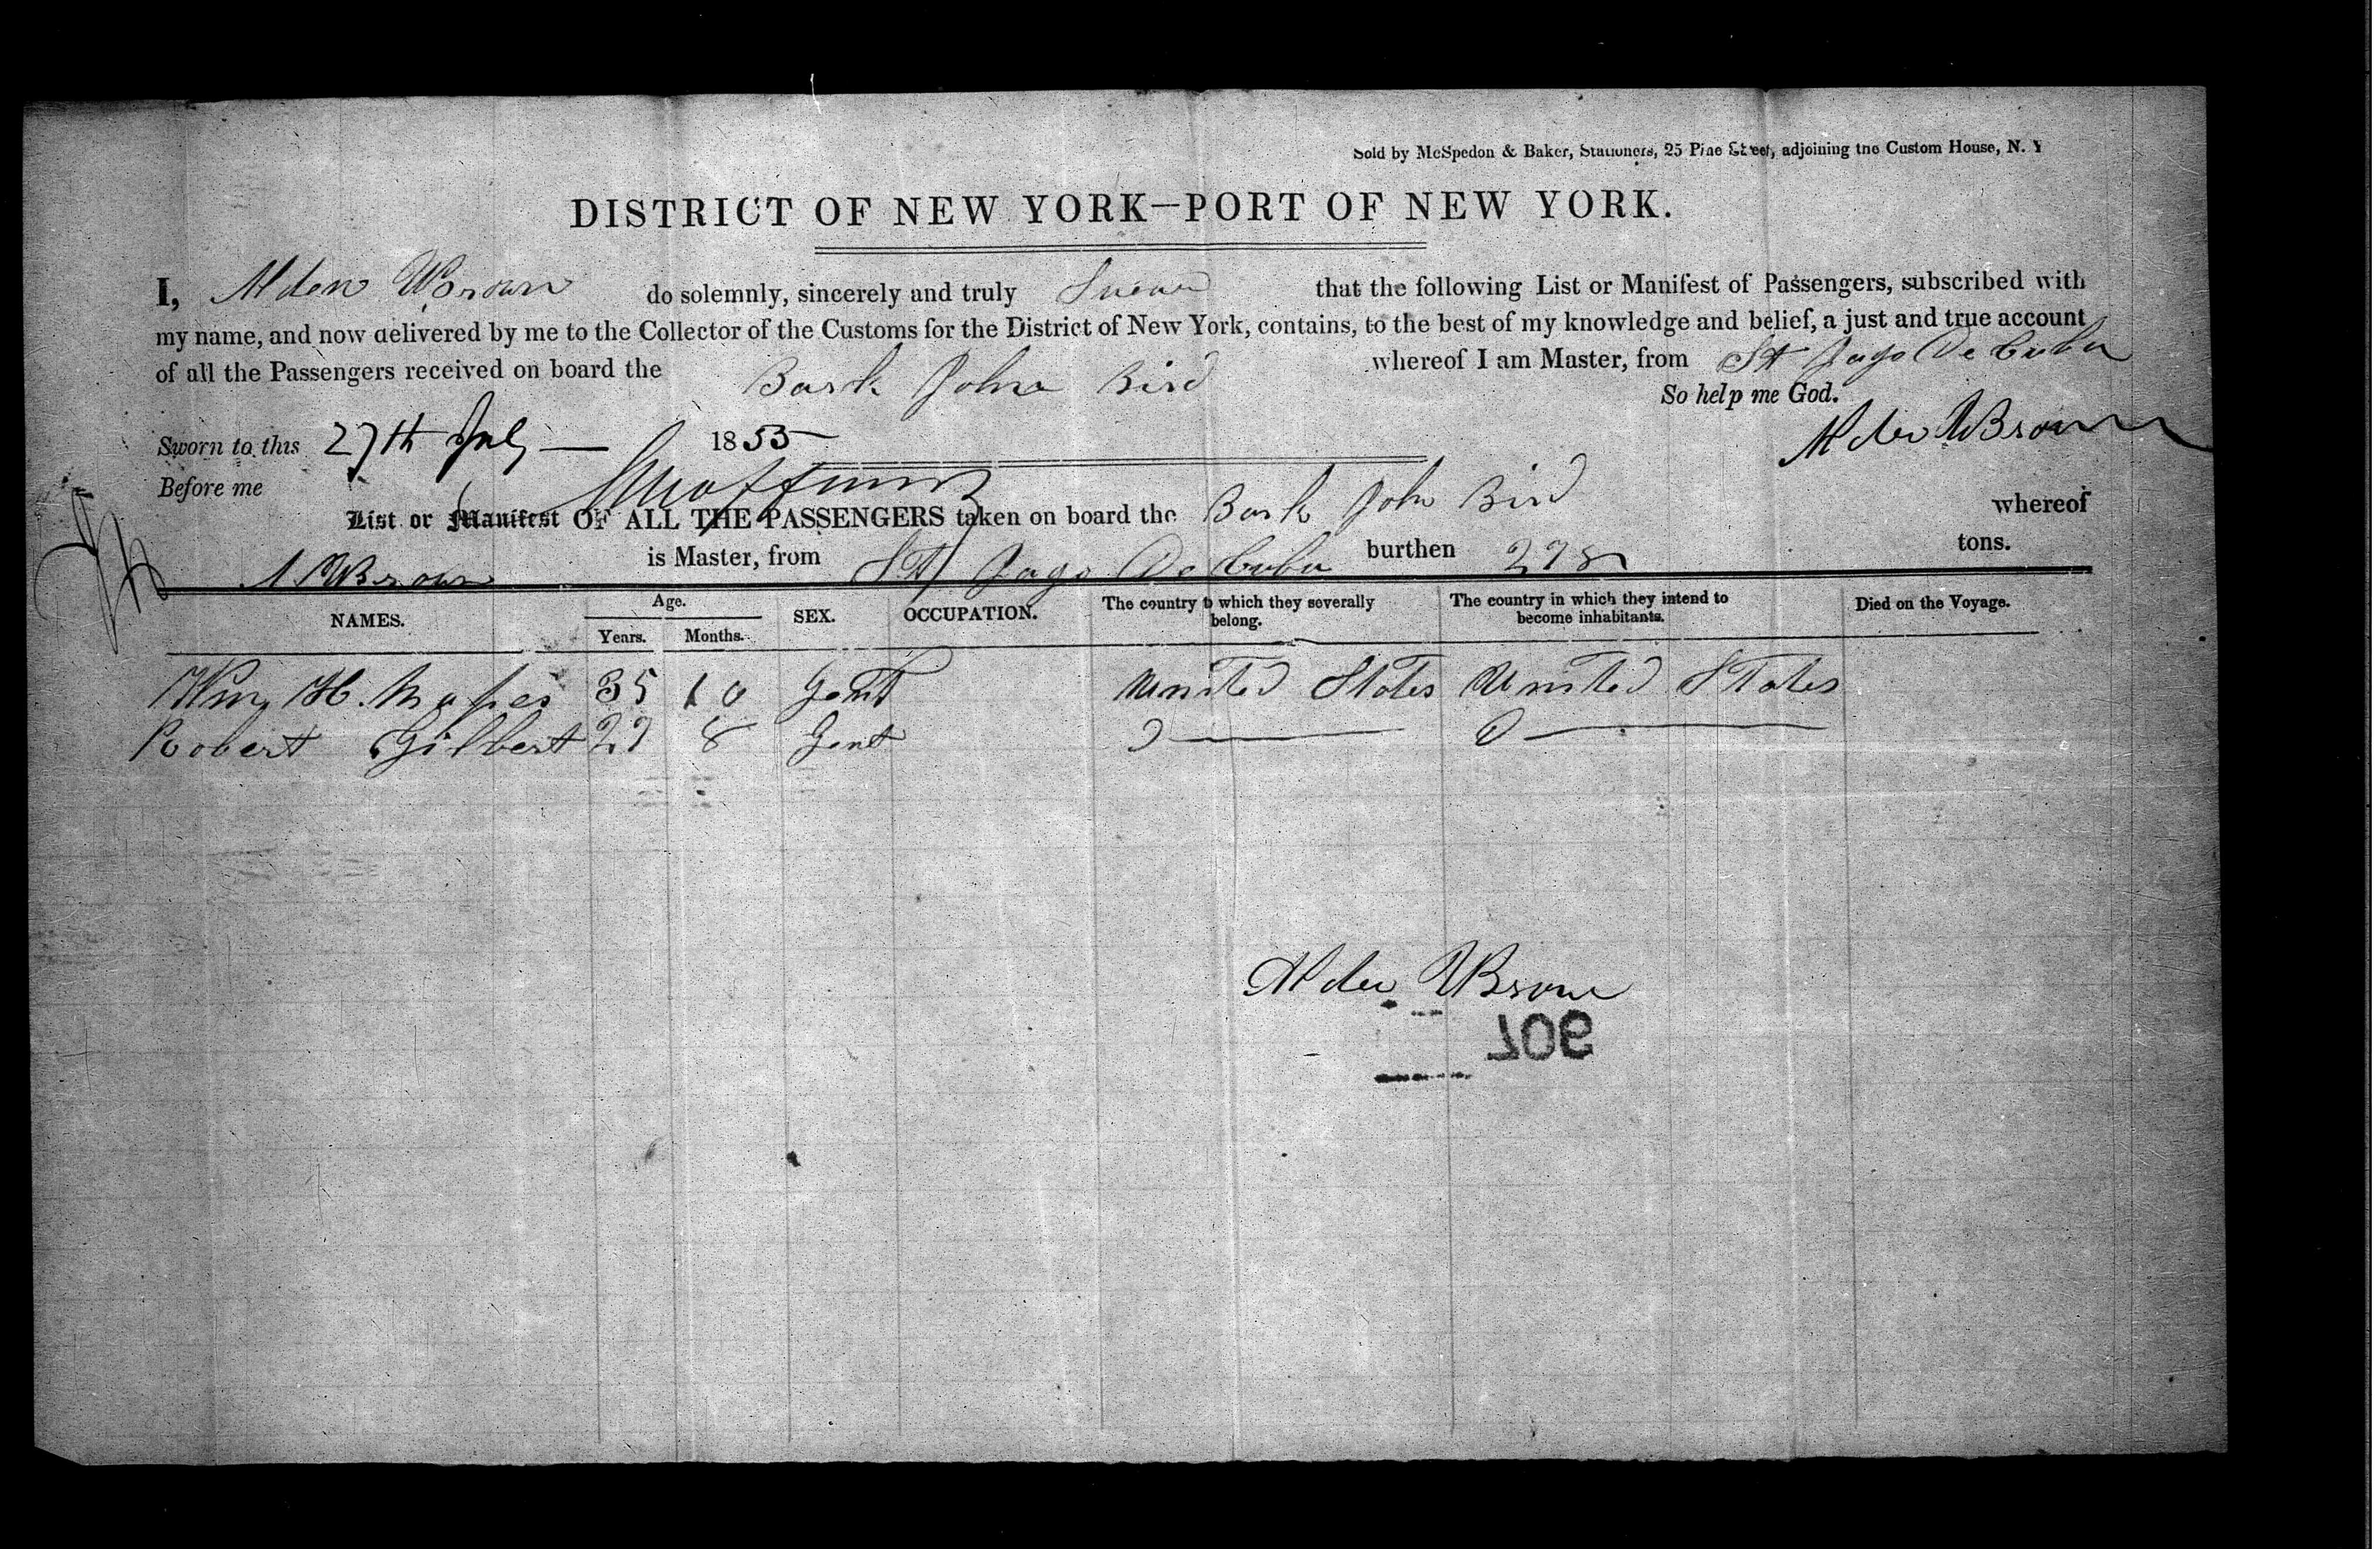 Sold by McSpedon & Baker, Stationers, 25 Pine Street, adjoining the Custom House, N. Y
DISTRICT OF NEW YORK—PORT OF NEW YORK.
I, Alden Brown do solemnly, sincerely and truly Swear that the following List or Manifest of Passengers, subscribed with
my name, and now delivered by me to the Collector of the Customs for the District of New York, contains, to the best of my knowledge and belief, a just and true account
of all the Passengers received on board the Bark John Bird whereof I am Master, from St Jago De Cuba
So help me God.
Sworn to this 27th July — 1853 Alden Brown
Before me
List or Manifest OF ALL THE PASSENGERS taken on board the Bark John Bird whereof
A Brown is Master, from St Jago De Cuba burthen 278 tons.
NAMES. Age. Years. Months. SEX. OCCUPATION. The country to which they severally belong. The country in which they intend to become inhabitants. Died on the Voyage.
Wm H. Mapes 35 10 Gent United States United States
Robert Gilbert 27 8 Gent D— D—
Alden Brown
907